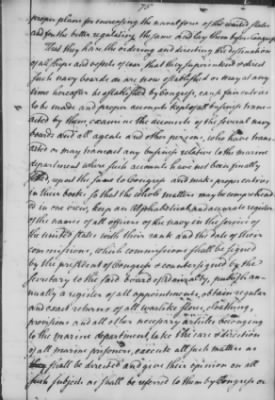 75
proper plans for increasing the naval force of the united States
and for the better regulating the same and lay them before Congress
That they have the ordering and directing the destination
of all ships and vessels of war that they superintend & direct
such navy boards as are now established or may at any
time hereafter be established by Congress, cause fair entries
to be made and proper accounts kept of all business trans
acted by them, examine the accounts of the several navy
boards and all agents and other persons, who have trans
acted or may transact any business relative to the marine
department where such accounts have not been finally
settled, report the same to Congress and make proper entries
in their books, so that the whole matters may be comprehend
ed in one view; keep an alphabetical and accurate register
of the names of all officers of the navy in the service of
the united states with their rank and the date of their
commissions, which commissions shall be signed
by the president of Congress & countersigned by the
Secretary to the said board of admiralty, publish an
nually a register of all appointments, obtain regular
and exact returns of all warlike stores, cloathing,
provisions and all other necessary articles belonging
to the marine department, take the care & direction
of all marine prisoners, execute all such matters as
they shall be directed and give their opinion on all
such subjects as shall be referred to them by Congress or